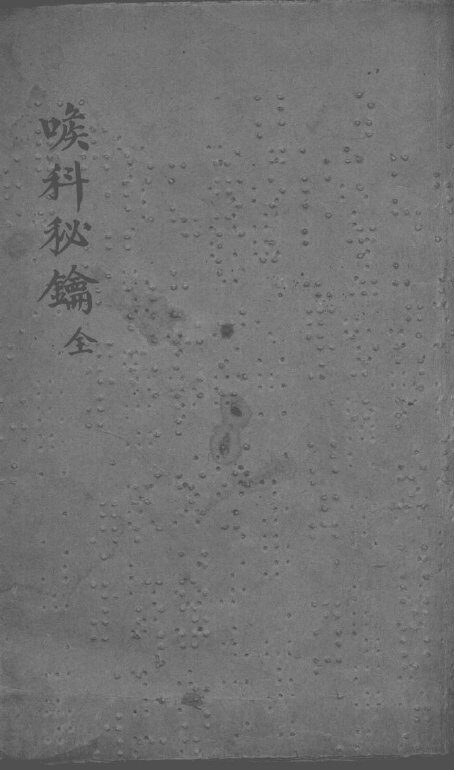 喉科秘鑰全